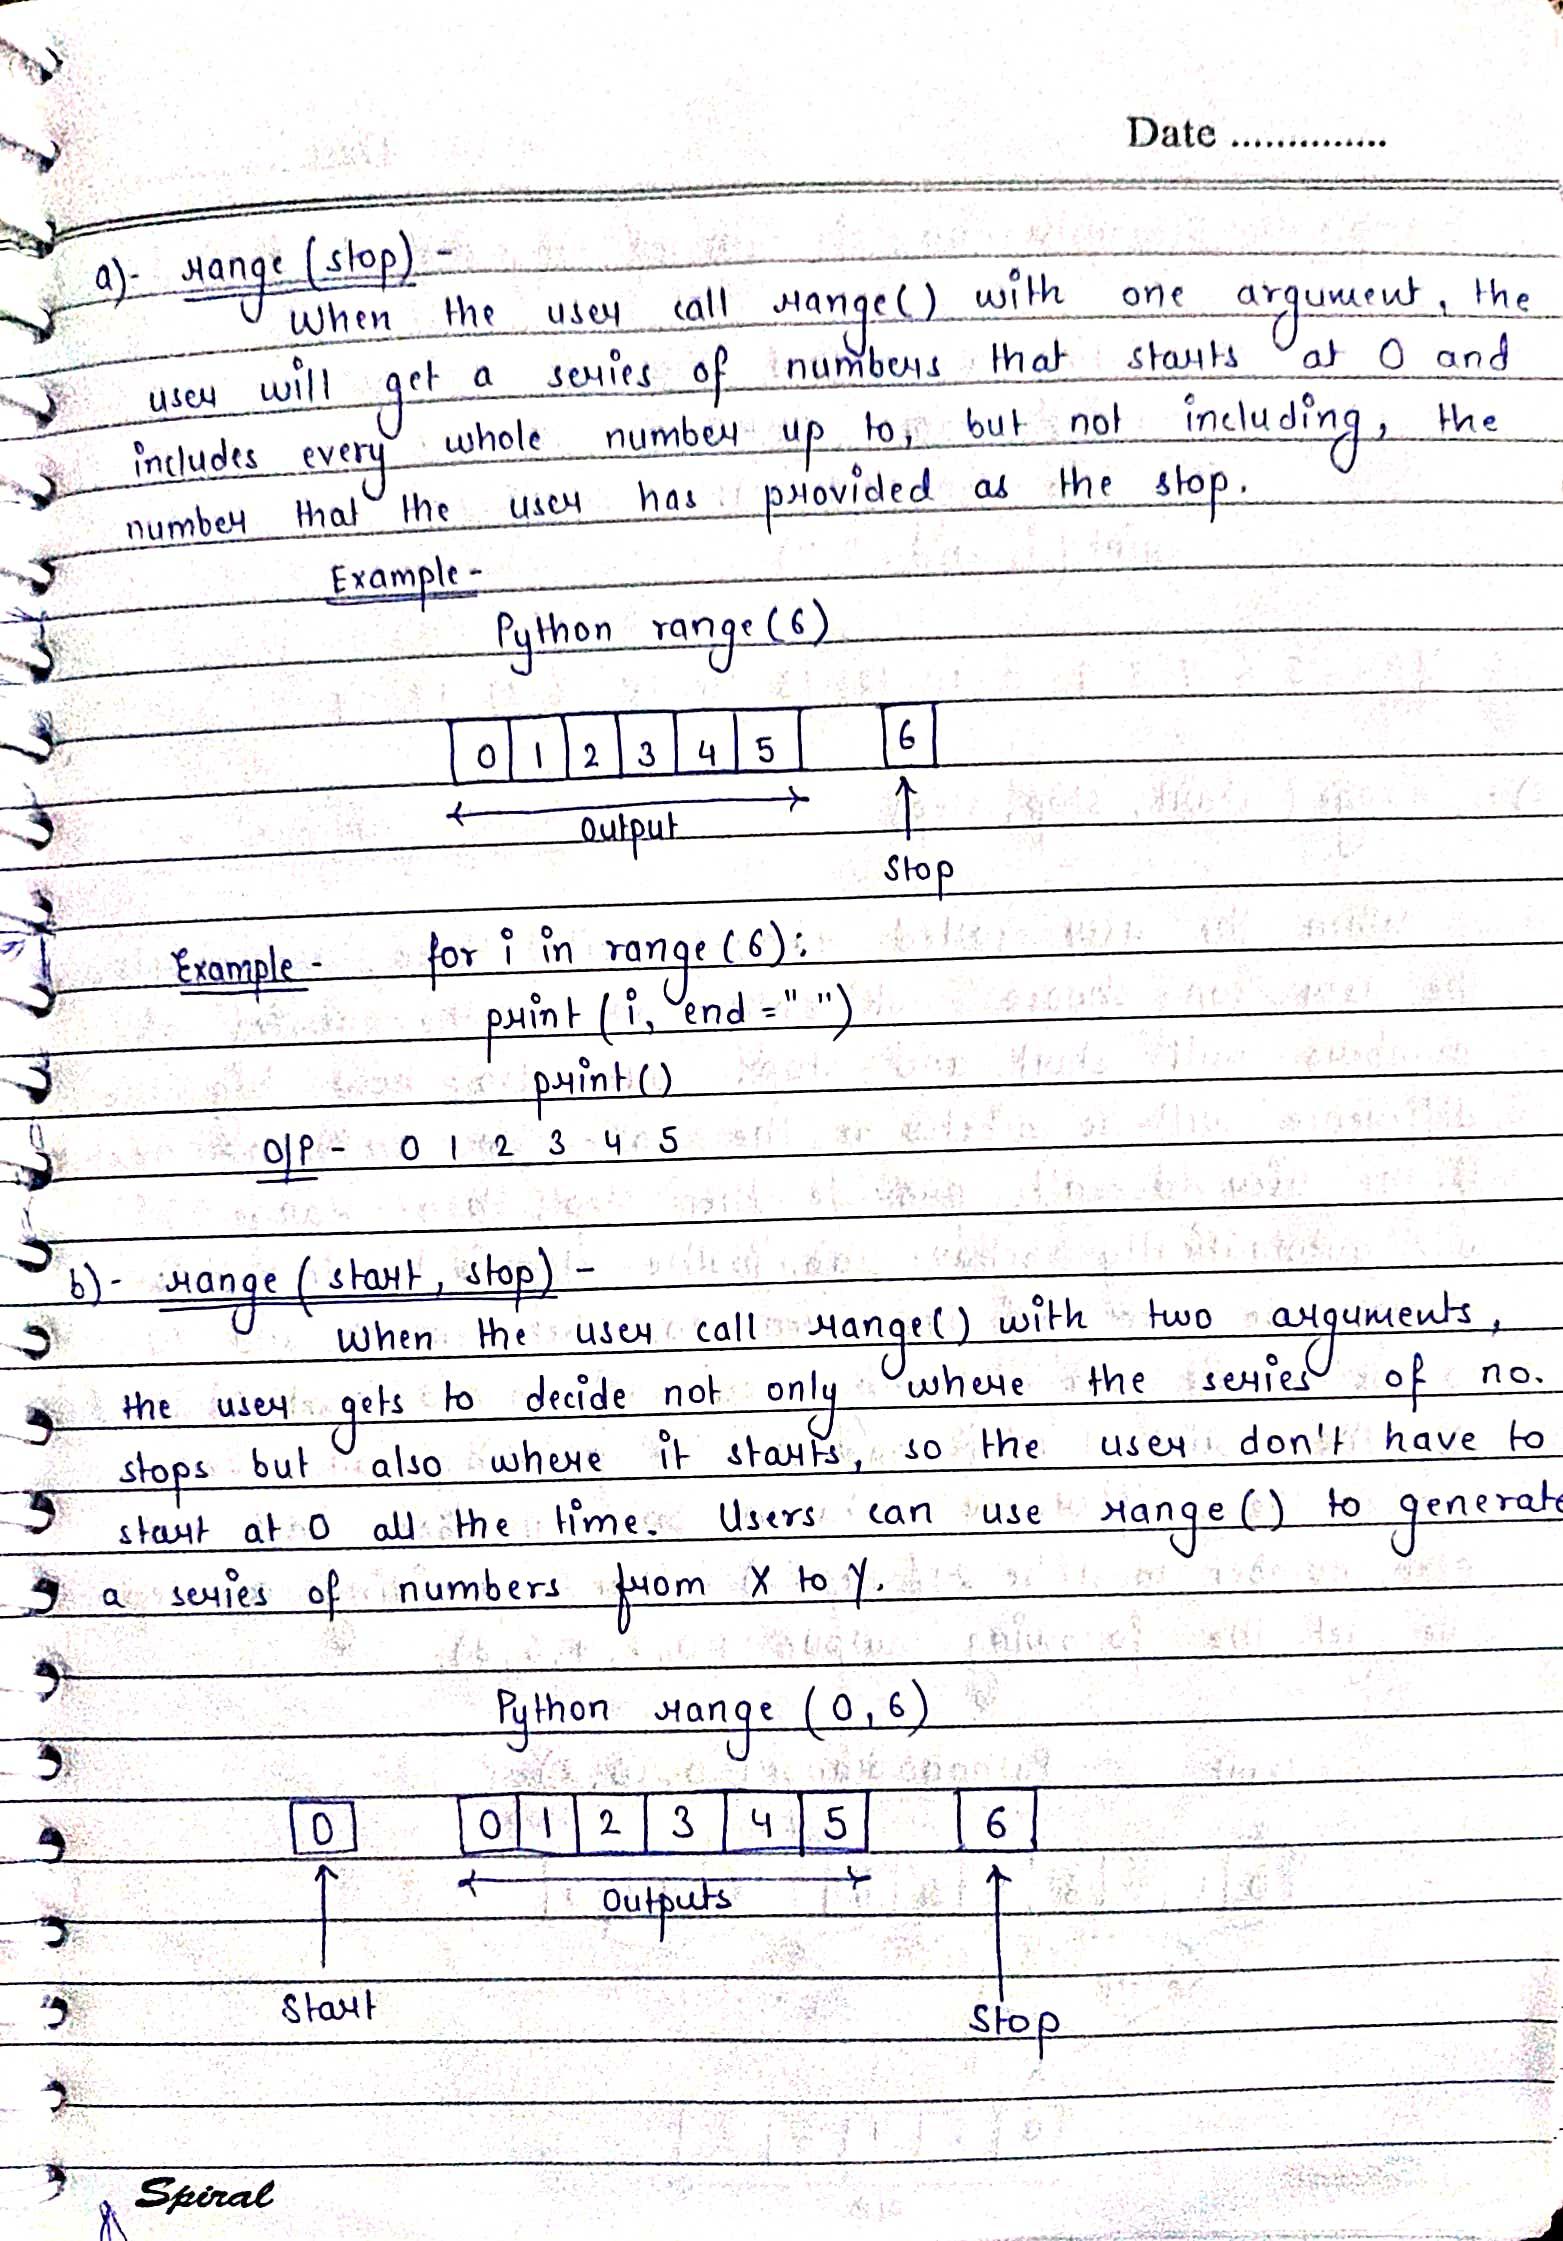 Date ..............
a)- range (stop) -
When the user call range() with one argument, the
user will get a series of numbers that starts at 0 and
includes every whole number up to, but not including, the
number that the user has provided as the stop.
Example -
Python range(6)
0 1 2 3 4 5 6
Output
Stop
Example - for i in range(6):
print (i, end = " ")
print()
O/P - 0 1 2 3 4 5
b)- range (start, stop) -
When the user call range() with two arguments,
the user gets to decide not only where the series of no.
stops but also where it starts, so the user don't have to
start at 0 all the time. Users can use range() to generate
a series of numbers from X to Y.
Python range (0,6)
0 0 1 2 3 4 5 6
Outputs
Start Stop
Spiral